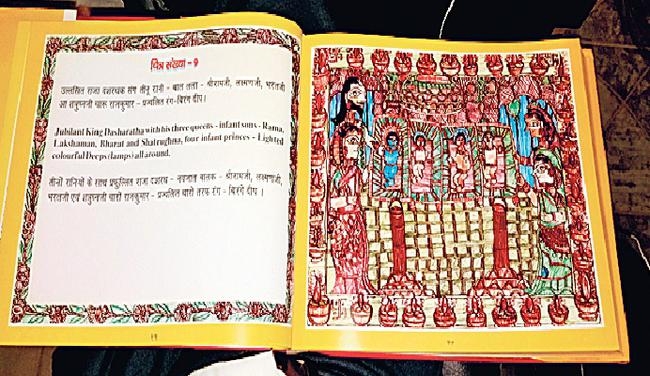 चित्र संख्या - 9
उल्लसित राजा दशरथक संग तीनू रानी - बाल लला - श्रीरामजी, लक्ष्मणजी, भरतजी
आ शत्रुघ्नजी चारू राजकुमार - प्रज्वलित रंग-बिरंग दीप।
Jubilant King Dasharatha with his three queens - infant sons - Rama,
Lakshaman, Bharat and Shatrughna, four infant princes - Lighted
colourful Deeps (lamps) all around.
तीनों रानियों के साथ प्रफुल्लित राजा दशरथ - नवजात बालक - श्रीरामजी, लक्ष्मणजी,
भरतजी एवं शत्रुघ्नजी चारों राजकुमार - प्रज्वलित चारों तरफ रंग - बिरंगे दीप ।